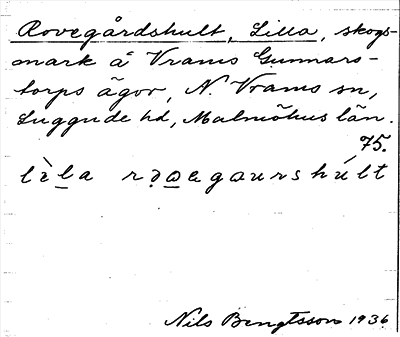 Rovegårdshult, Lilla, skogs-
mark å Vrams Gunnars-
torps ägor, N. Vrams sn,
Luggude hd, Malmöhus län.
75.
lìla rǫωegaurshúlt
Nils Bengtsson 1936